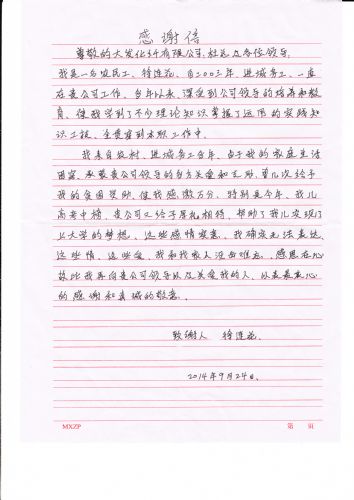 感谢信
尊敬的大发化纤有限公司,杜总及各位领导:
我是一名农民工、 连花,自2003年,进城务工,一直
在贵公司工作,当年以来,深受到公司领导的培养和教
育,使我学到了不少理论知识掌握了运用的实践知
识工技,全贯穿到本职工作中。
我来自农村,进城务工多年,由于我的家庭生活
困窘,承蒙贵公司领导的多方关爱和走助,曾几次给予
我的贫困资助,使我感激万分,特别是今年,我儿
高考中榜,贵公司又给予厚礼相待,帮助了我儿实现了
上大学的梦想,这些感情实意,我确实无法表达,
这些情、这些爱、我和我家人没齿难忘,感恩在心
故此我再向贵公司领导以及关爱我的人,以表最衷心
的感谢和真诚的敬意。
致谢人 连花
2014年9月24日、
MXZP 第 页